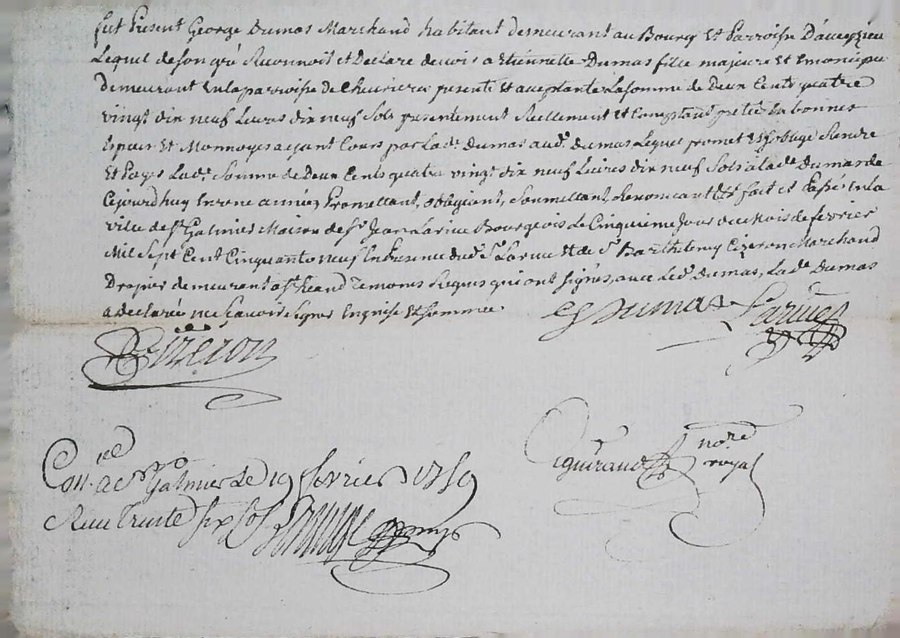 fut Present George Dumas Marchand habitant demeurant au Bourg Et Parroisse D'aveyzieu
Lequel de son gré Reconnoit et Declare devoir a Etiennette Dumas fille majeure Et Emancipée
demeurant En la parroisse de Chevrieres presente Et acceptante La somme de Deux Cents quatre
vingt dix neuf Livres dix neuf Sols presentement Reellement Et Comptant pretée En bonnes
Especes Et Monnoyes ayant Cours par lade. Dumas aud. Dumas Lequel promet Et s'oblige Rendre
Et Payer Lade. Somme de Deux Cents quatre vingt dix neuf Livres dix neuf Sols a lade. Dumas de
Cejourdhuy En années Promettant, obligeant, Soumettant, Renonceant &a. fait et Passé En la
ville de St. Galmier Maison de Sr. Jean Larüe Bourgeois Le Cinquieme Jour du Mois de fevrier
Mil Sept Cent Cinquante neuf En presence dud. Sr. Larüe Et de Sr. Barthelemy Cizeron Marchand
Drapier demeurant aud. St. Temoins Requis qui ont signés, avec Led. Dumas, Lade. Dumas
a declaré ne sçavoir signer Enquise Et Sommée
G Dumas Larüe
B Cizeron
Con.lé a St. Galmier Le 19 fevrier 1759
Reçu trente six sols
Eguiraud
nore
royal